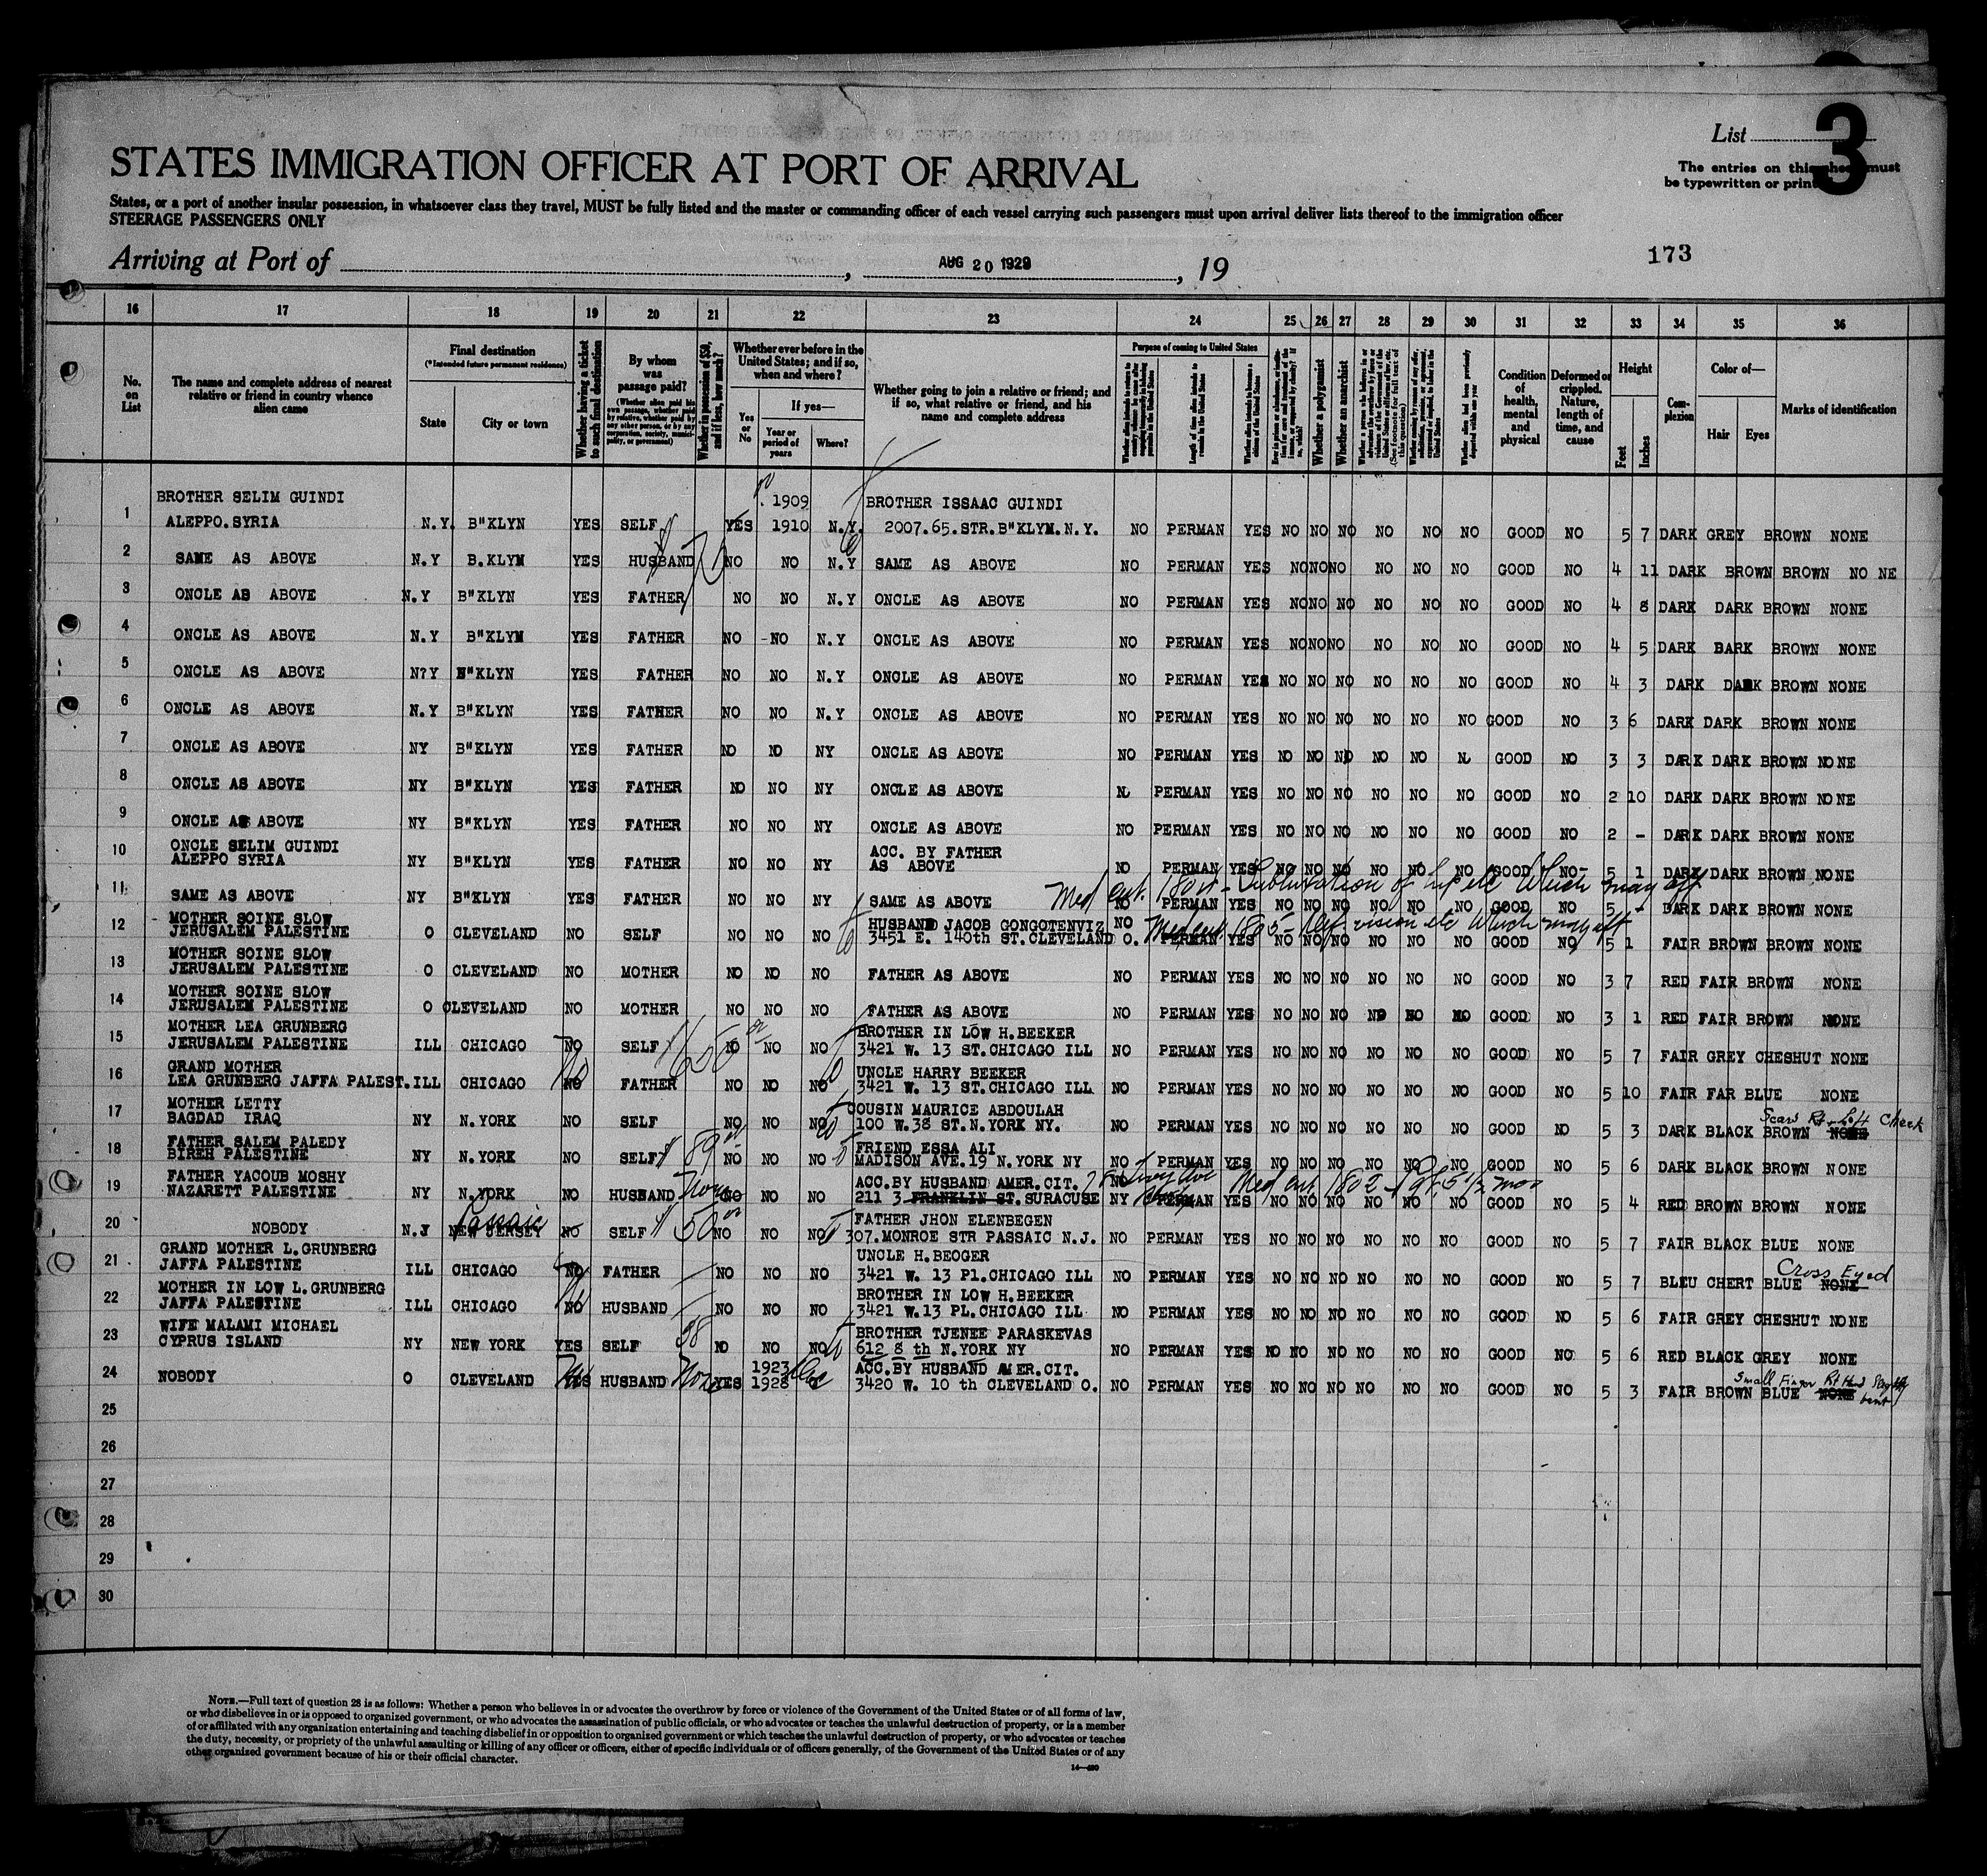 List 3
The entries on this sheet must
be typewritten or printed
STATES IMMIGRATION OFFICER AT PORT OF ARRIVAL
States, or a port of another insular possession, in whatsoever class they travel, MUST be fully listed and the master or commanding officer of each vessel carrying such passengers must upon arrival deliver lists thereof to the immigration officer
STEERAGE PASSENGERS ONLY
173
Arriving at Port of , AUG 20 1929 , 19
16 17 18 19 20 21 22 23 24 25 26 27 28 29 30 31 32 33 34 35 36
No. on List
The name and complete address of nearest relative or friend in country whence alien came
Final destination
(*Intended future permanent residence)
State City or town
Whether having a ticket to such final destination
By whom was passage paid?
(Whether alien paid his own passage, whether paid by relative, whether paid by any other person, or by any corporation, society, municipality, or government)
Whether in possession of $50, and if less, how much?
Whether ever before in the United States; and if so, when and where?
Yes or No
If yes—
Year or period of years Where?
Whether going to join a relative or friend; and if so, what relative or friend, and his name and complete address
Purpose of coming to United States
Length of time alien intends to remain in the United States
Whether a polygamist
Whether an anarchist
(See footnote for full text of this question)
Condition of health, mental and physical
Deformed or crippled. Nature, length of time, and cause
Height
Feet Inches
Complexion
Color of—
Hair Eyes
Marks of identification
BROTHER SELIM GUINDI 1909 BROTHER ISSAAC GUINDI
1 ALEPPO.SYRIA N.Y. B"KLYN YES SELF YES 1910 N.Y. 2007.65.STR.B"KLYM.N.Y. NO PERMAN YES NO NO NO NO NO NO GOOD NO 5 7 DARK GREY BROWN NONE
2 SAME AS ABOVE N.Y B.KLYM YES HUSBAND NO NO N.Y SAME AS ABOVE NO PERMAN YES NO NO NO NO NO NO GOOD NO 4 11 DARK BROWN BROWN NO NE
3 ONCLE AS ABOVE N.Y B"KLYN YES FATHER NO NO N.Y ONCLE AS ABOVE NO PERMAN YES NO NO NO NO NO NO GOOD NO 4 8 DARK DARK BROWN NONE
4 ONCLE AS ABOVE N.Y B"KLYM YES FATHER NO -NO N.Y ONCLE AS ABOVE NO PERMAN YES NO NO NO NO NO NO GOOD NO 4 5 DARK BARK BROWN NONE
5 ONCLE AS ABOVE N?Y B"KLYN YES FATHER NO NO N.Y ONCLE AS ABOVE NO PERMAN YES NO NO NO NO NO NO GOOD NO 4 3 DARK DARK BROWN NONE
6 ONCLE AS ABOVE N.Y B"KLYN YES FATHER NO NO N.Y ONCLE AS ABOVE NO PERMAN YES NO NO NO NO NO NO GOOD NO 3 6 DARK DARK BROWN NONE
7 ONCLE AS ABOVE NY B"KLYN YES FATHER NO NO NY ONCLE AS ABOVE NO PERMAN YES NO NO NO NO NO GOOD NO 3 3 DARK DARK BROWN NONE
8 ONCLE AS ABOVE NY B"KLYN YES FATHER NO NO NY ONCLE AS ABOVE PERMAN YES NO NO NO NO NO NO GOOD NO 2 10 DARK DARK BROWN NONE
9 ONCLE AS ABOVE NY B"KLYN YES FATHER NO NO NY ONCLE AS ABOVE NO PERMAN YES NO NO NO NO NO NO GOOD NO 2 - DARK DARK BROWN NONE
ONCLE SELIM GUINDI ACC. BY FATHER
10 ALEPPO SYRIA NY B"KLYN YES FATHER NO NO NY AS ABOVE NO PERMAN YES NO NO NO NO NO NO GOOD NO- 5 1 DARK DARK BROWN NONE
11 SAME AS ABOVE NY B"KLYN YES FATHER NO NO NY SAME AS ABOVE NO PERMAN YES NO NO NO NO NO NO GOOD NO 5 - DARK DARK BROWN NONE
MOTHER SOINE SLOW HUSBAND JACOB GONGOTENVIZ NO
12 JERUSALEM PALESTINE O CLEVELAND NO SELF NO NO NO 3451 E. 140th ST.CLEVELAND O. PERMAN YES NO NO NO NO NO NO GOOD NO 5 1 FAIR BROWN BROWN NONE
MOTHER SOINE SLOW
13 JERUSALEM PALESTINE O CLEVELAND NO MOTHER NO NO NO FATHER AS ABOVE NO PERMAN YES NO NO NO NO NO NO GOOD NO 3 7 RED FAIR BROWN NONE
MOTHER SOINE SLOW
14 JERUSALEM PALESTINE O CLEVELAND NO MOTHER NO NO NO FATHER AS ABOVE NO PERMAN YES NO NO NO NO NO NO GOOD NO 3 1 RED FAIR BROWN NONE
MOTHER LEA GRUNBERG BROTHER IN LOW H.BEEKER
15 JERUSALEM PALESTINE ILL CHICAGO NO SELF NO NO NO 3421 W. 13 ST.CHICAGO ILL NO PERMAN YES NO NO NO NO NO NO GOOD NO 5 7 FAIR GREY CHESHUT NONE
GRAND MOTHER UNCLE HARRY BEEKER
16 LEA GRUNBERG JAFFA PALEST. ILL CHICAGO NO FATHER NO NO NO 3421 W. 13 ST.CHICAGO ILL NO PERMAN YES NO NO NO NO NO NO GOOD NO 5 10 FAIR FAR BLUE NONE
MOTHER LETTY COUSIN MAURICE ABDOULAH Scars Rt & Left Cheek
17 BAGDAD IRAQ NY N.YORK NO SELF NO NO NO 100 W.38 ST.N.YORK NY. NO PERMAN YES NO NO NO NO NO NO GOOD NO 5 3 DARK BLACK BROWN NONE
FATHER SALEM PALEDY FRIEND ESSA ALI
18 BIREH PALESTINE NY N.YORK NO SELF $ 89 NO NO NO MADISON AVE.19 N.YORK NY NO PERMAN YES NO NO NO NO NO NO GOOD NO 5 6 DARK BLACK BROWN NONE
FATHER YACOUB MOSHY ACC.BY HUSBAND AMER.CIT.
19 NAZARETT PALESTINE NY N.YORK NO HUSBAND None NO NO NO 211 3 FRANKLIN ST. SURACUSE NY PERMAN YES NO NO NO NO NO NO GOOD NO 5 4 RED BROWN BROWN NONE
Passaic FATHER JHON ELENBEGEN
20 NOBODY N.J NEW JERSEY NO SELF $ 50 NO NO NO 307.MONROE STR PASSAIC N.J. NO PERMAN YES NO NO NO NO NO NO GOOD NO 5 7 FAIR BLACK BLUE NONE
GRAND MOTHER L.GRUNBERG UNCLE H.BEOGER Cross Eyed
21 JAFFA PALESTINE ILL CHICAGO NO FATHER NO NO NO 3421 W. 13 Pl.CHICAGO ILL NO PERMAN YES NO NO NO NO NO NO GOOD NO 5 7 BLEU CHERT BLUE NONE
MOTHER IN LOW L.GRUNBERG BROTHER IN LOW H.BEEKER
22 JAFFA PALESTINE ILL CHICAGO NO HUSBAND NO NO NO 3421 W.13 PL.CHICAGO ILL NO PERMAN YES NO NO NO NO NO NO GOOD NO 5 6 FAIR GREY CHESHUT NONE
WIFE MALAMI MICHAEL BROTHER TJENEE PARASKEVAS
23 CYPRUS ISLAND NY NEW YORK YES SELF 58 NO NO NO 612 8 th N.YORK NY NO PERMAN YES NO NO NO NO NO NO GOOD NO 5 6 RED BLACK GREY NONE
1923 ACC.BY HUSBAND AMER.CIT. Small Finger Rt Hand Slightly bent
24 NOBODY O CLEVELAND HUSBAND None YES 1928 3420 W. 10 th CLEVELAND O. NO PERMAN YES NO NO NO NO NO NO GOOD NO 5 3 FAIR BROWN BLUE NONE
25
26
27
28
29
30
NOTE.—Full text of question 28 is as follows: Whether a person who believes in or advocates the overthrow by force or violence of the Government of the United States or of all forms of law,
or who disbelieves in or is opposed to organized government, or who advocates the assassination of public officials, or who advocates or teaches the unlawful destruction of property, or is a member
of or affiliated with any organization entertaining and teaching disbelief in or opposition to organized government or which teaches the unlawful destruction of property, or who advocates or teaches
the duty, necessity, or propriety of the unlawful assaulting or killing of any officer or officers, either of specific individuals or of officers generally, of the Government of the United States or of any
other organized government because of his or their official character.
14—490